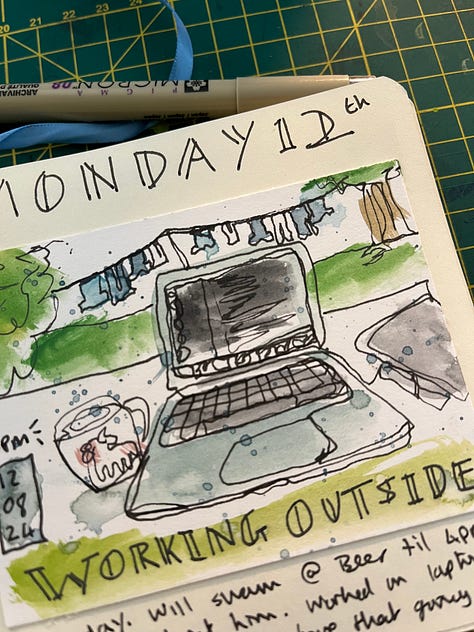 20 21 22 23 24
PIGMA MICRON 08
ARCHIVAL
MONDAY 12th
PM
12
08
24
WORKING OUTSIDE
day. Will swam @ Beer til
him. Worked on
that